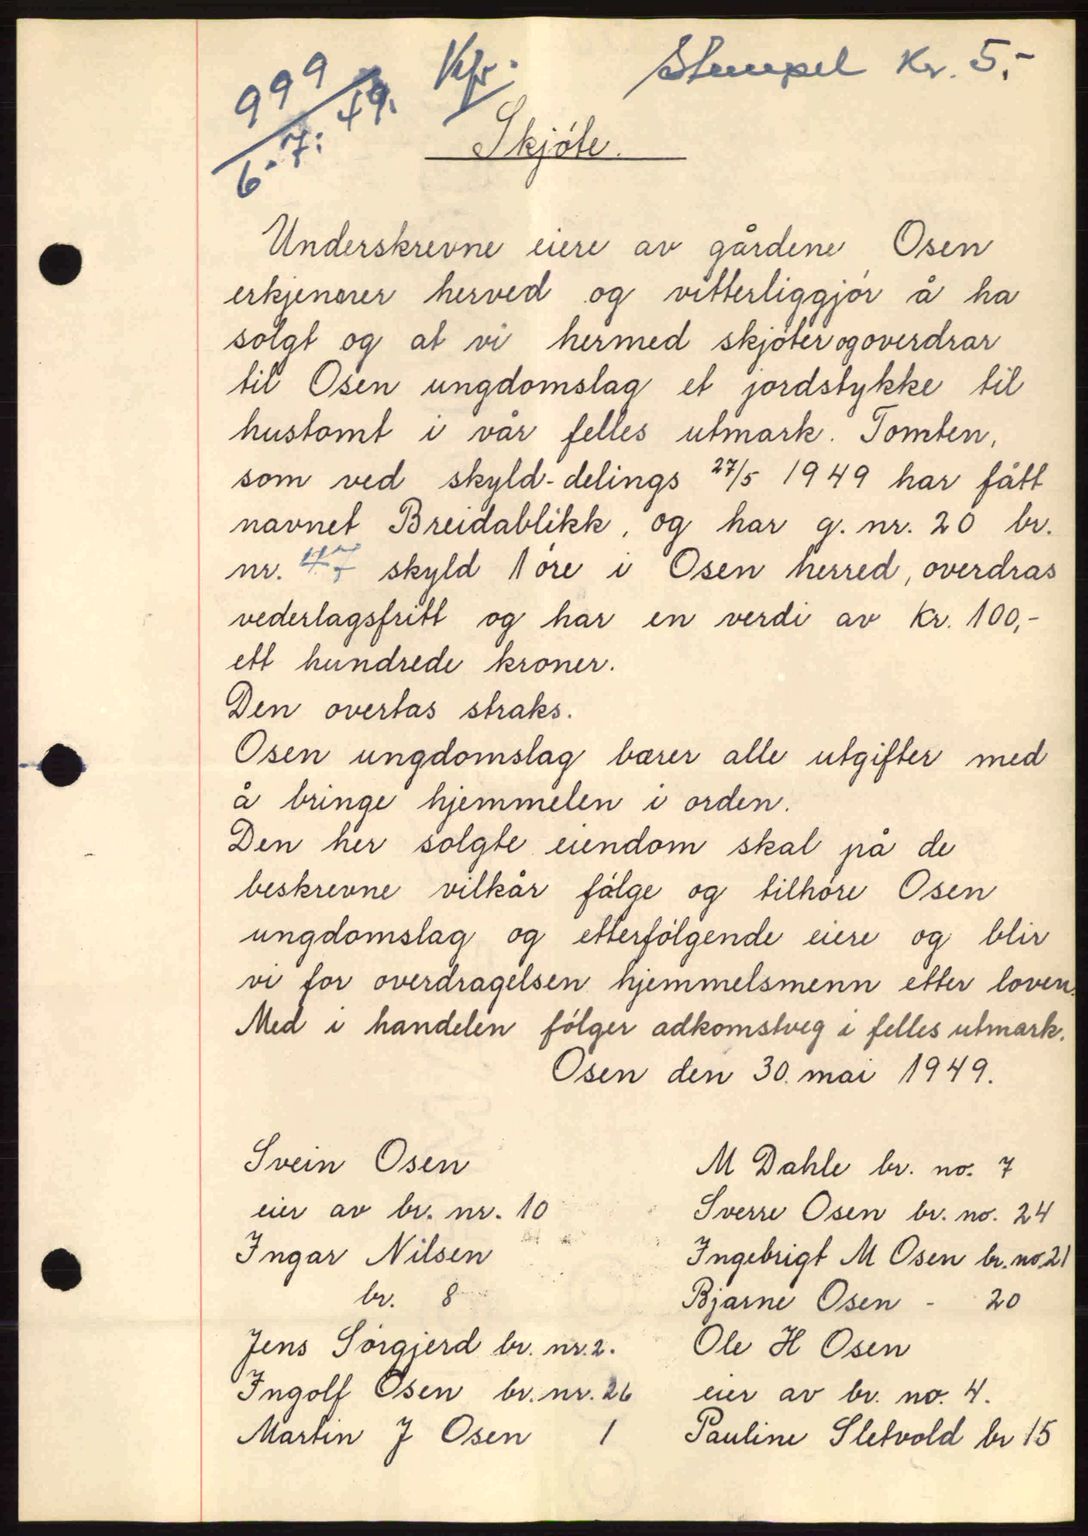 999
6-7-49. Kfr. Stempel Kr. 5,-
Skjóte.
Underskrevne eiere av gårdene Osen
erkjenner herved og vitterliggjór å ha
solgt og at vi hermed skjóter og overdrar
til Osen ungdomslag et jordstykke til
hustomt i vår felles utmark. Tomten,
som ved skyld-delings 27/5 1949 har fått
navnet Breidablikk, og har g. nr. 20 br.
nr. 47 skyld 1 óre i Osen herred, overdras
vederlagsfritt og har en verdi av Kr. 100,-
ett hundrede kroner.
Den overtas straks.
Osen ungdomslag bærer alle utgifter med
å bringe hjemmelen i orden.
Den her solgte eiendom skal på de
beskrevne vilkår fólge og tilhóre Osen
ungdomslag og etterfólgende eiere og blir
vi for overdragelsen hjemmelsmenn etter loven.
Med i handelen fólger adkomstveg i felles utmark.
Osen den 30. mai 1949.
Svein Osen
eier av br. nr. 10
Ingar Nilsen
br. 8
Jens Sórgjerd br. nr. 2.
Ingolf Osen br. nr. 26
Martin J Osen 1
M Dahle br. no. 7
Sverre Osen br. no. 24
Ingebrigt M Osen br. no 21
Bjarne Osen - 20
Ole H Osen
eier av br. no. 4.
Pauline Sletvold br 15